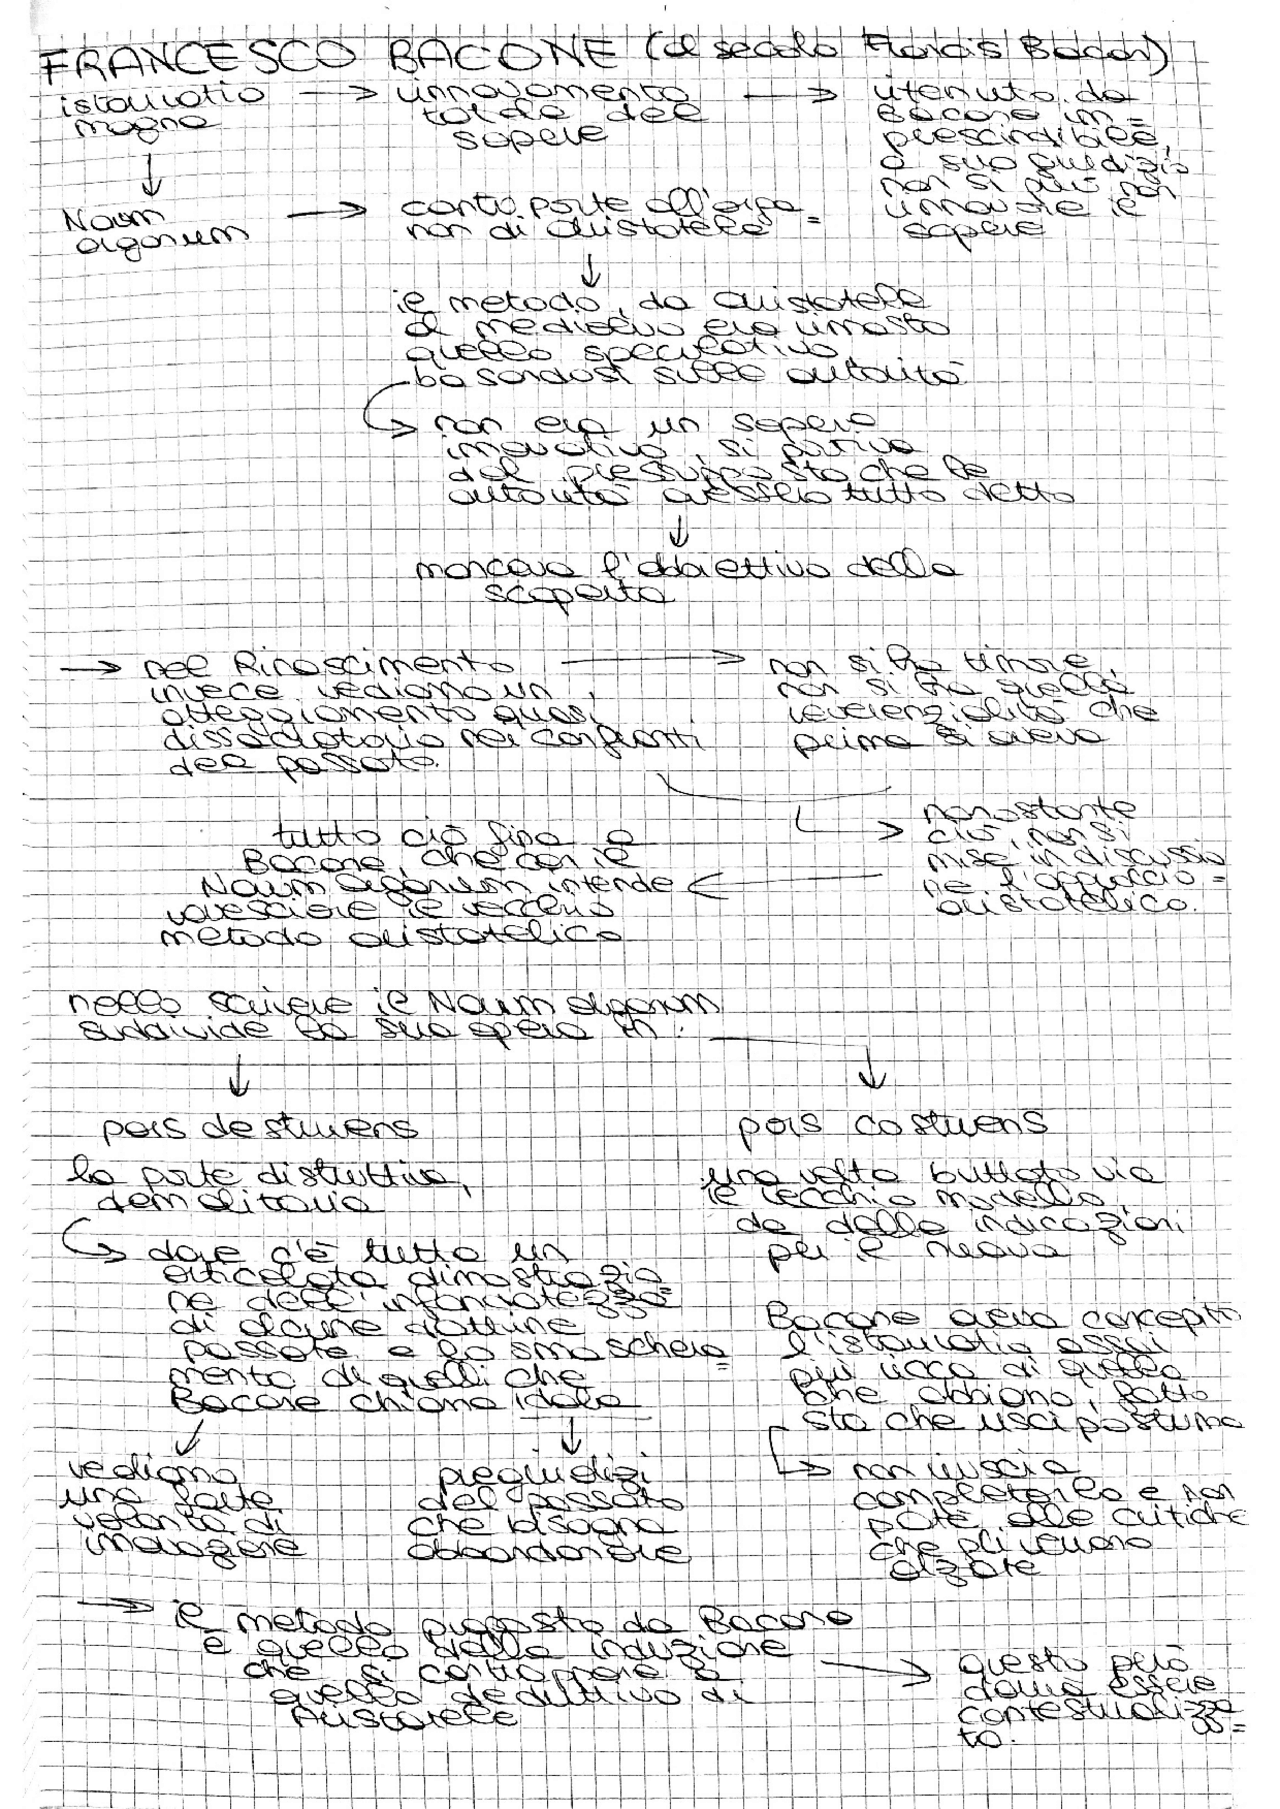 FRANCESCO BACONE (al secolo Francis Bacon)
istauratio
magna
rinnovamento
totale del
sapere
ritenuto da
Bacone im=
prescindibile,
a suo giudizio
non si può non
rinnovare il
sapere
Novum
organum
contro parte all'orga=
non di Aristotele
il metodo, da Aristotele
al medioevo era rimasto
quello speculativo,
basandosi sulle autorità
non era un sapere
innovativo, si partiva
dal presupposto che le
autorità avessero tutto detto
mancava l'obbiettivo della
scoperta
nel Rinascimento
invece vediamo un
atteggiamento quasi
dissacratorio nei confronti
del passato.
non si ha timore,
non si ha quella
reverenzialità che
prima si aveva
nonostante
ciò, non si
mise in discussio
ne l'approccio=
aristotelico.
tutto ciò fino a
Bacone, che con il
Novum organum intende
rovesciare il vecchio
metodo aristotelico
nello scrivere il Novum organum
suddivide la sua opera in:
pars destruens
la parte distruttiva,
demolitoria
dove c'è tutta un
articolata dimostrazio
ne dell'infondatezza=
di alcune dottrine
passate e lo smaschera=
mento di quelli che
Bacone chiama idola
vediamo
una forte
volontà di
innovazione
pregiudizi
del passato
che bisogna
abbandonare
pars costruens
una volta buttato via
il vecchio modello,
da delle indicazioni
per il nuovo
Bacone aveva concepito
l'istauratio assai
più ricca di quella
che abbiamo, fatto
sta che uscì postuma
non riuscì a
completarla e non
poté alle critiche
che gli vennero
alzate
il metodo proposto da Bacone
è quello della induzione
che si contrappone a
quello deduttivo di
Aristotele
questo però
dovrà essere
contestualizza=
to.